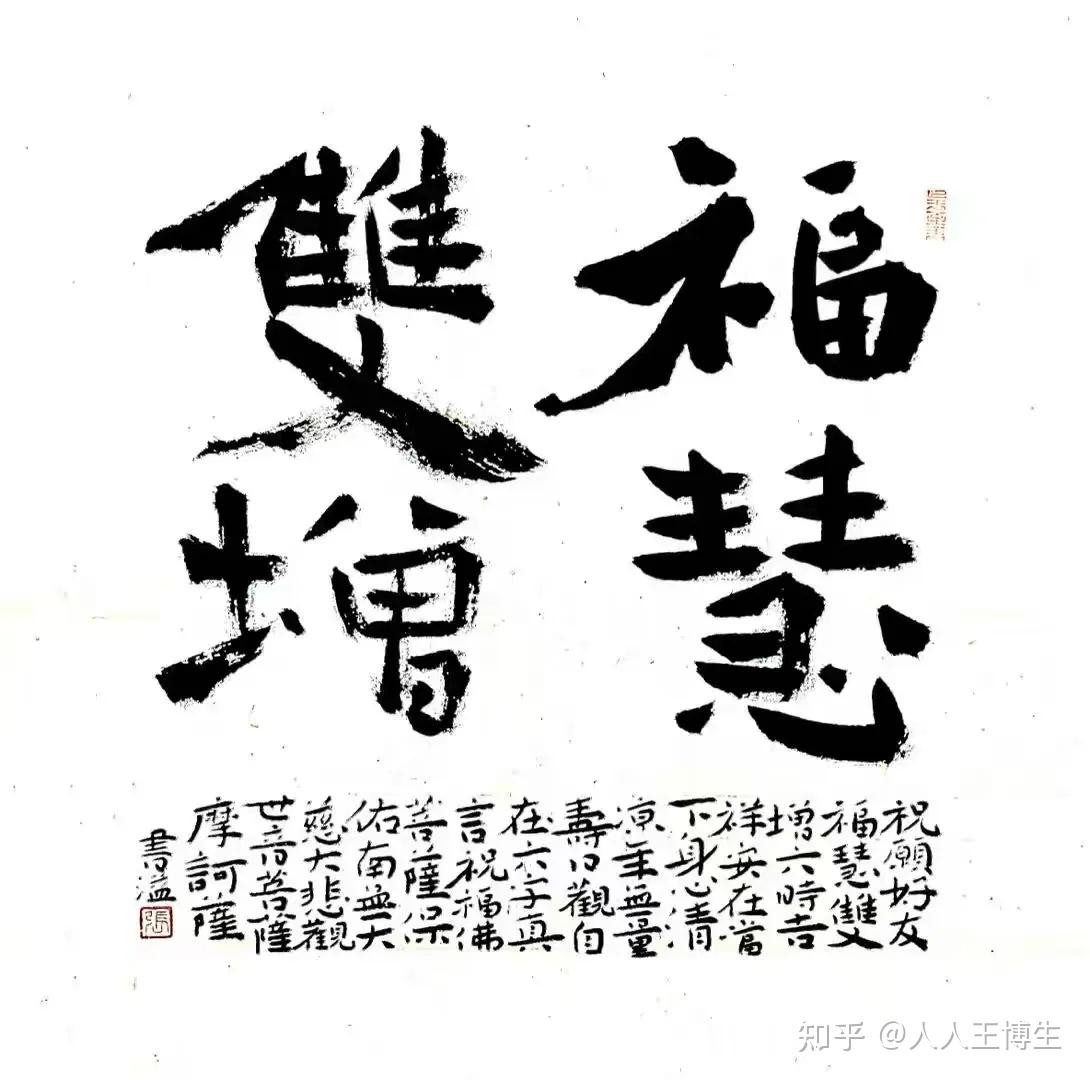 福慧
雙增
祝願好友
福慧雙
增六時吉
祥安在當
下身心清
涼年無量
壽日觀自
在六字真
言祝福佛
菩薩保
佑南無大
慈大悲觀
世音菩薩
摩訶薩
書溢
張
知乎 @人人王博生